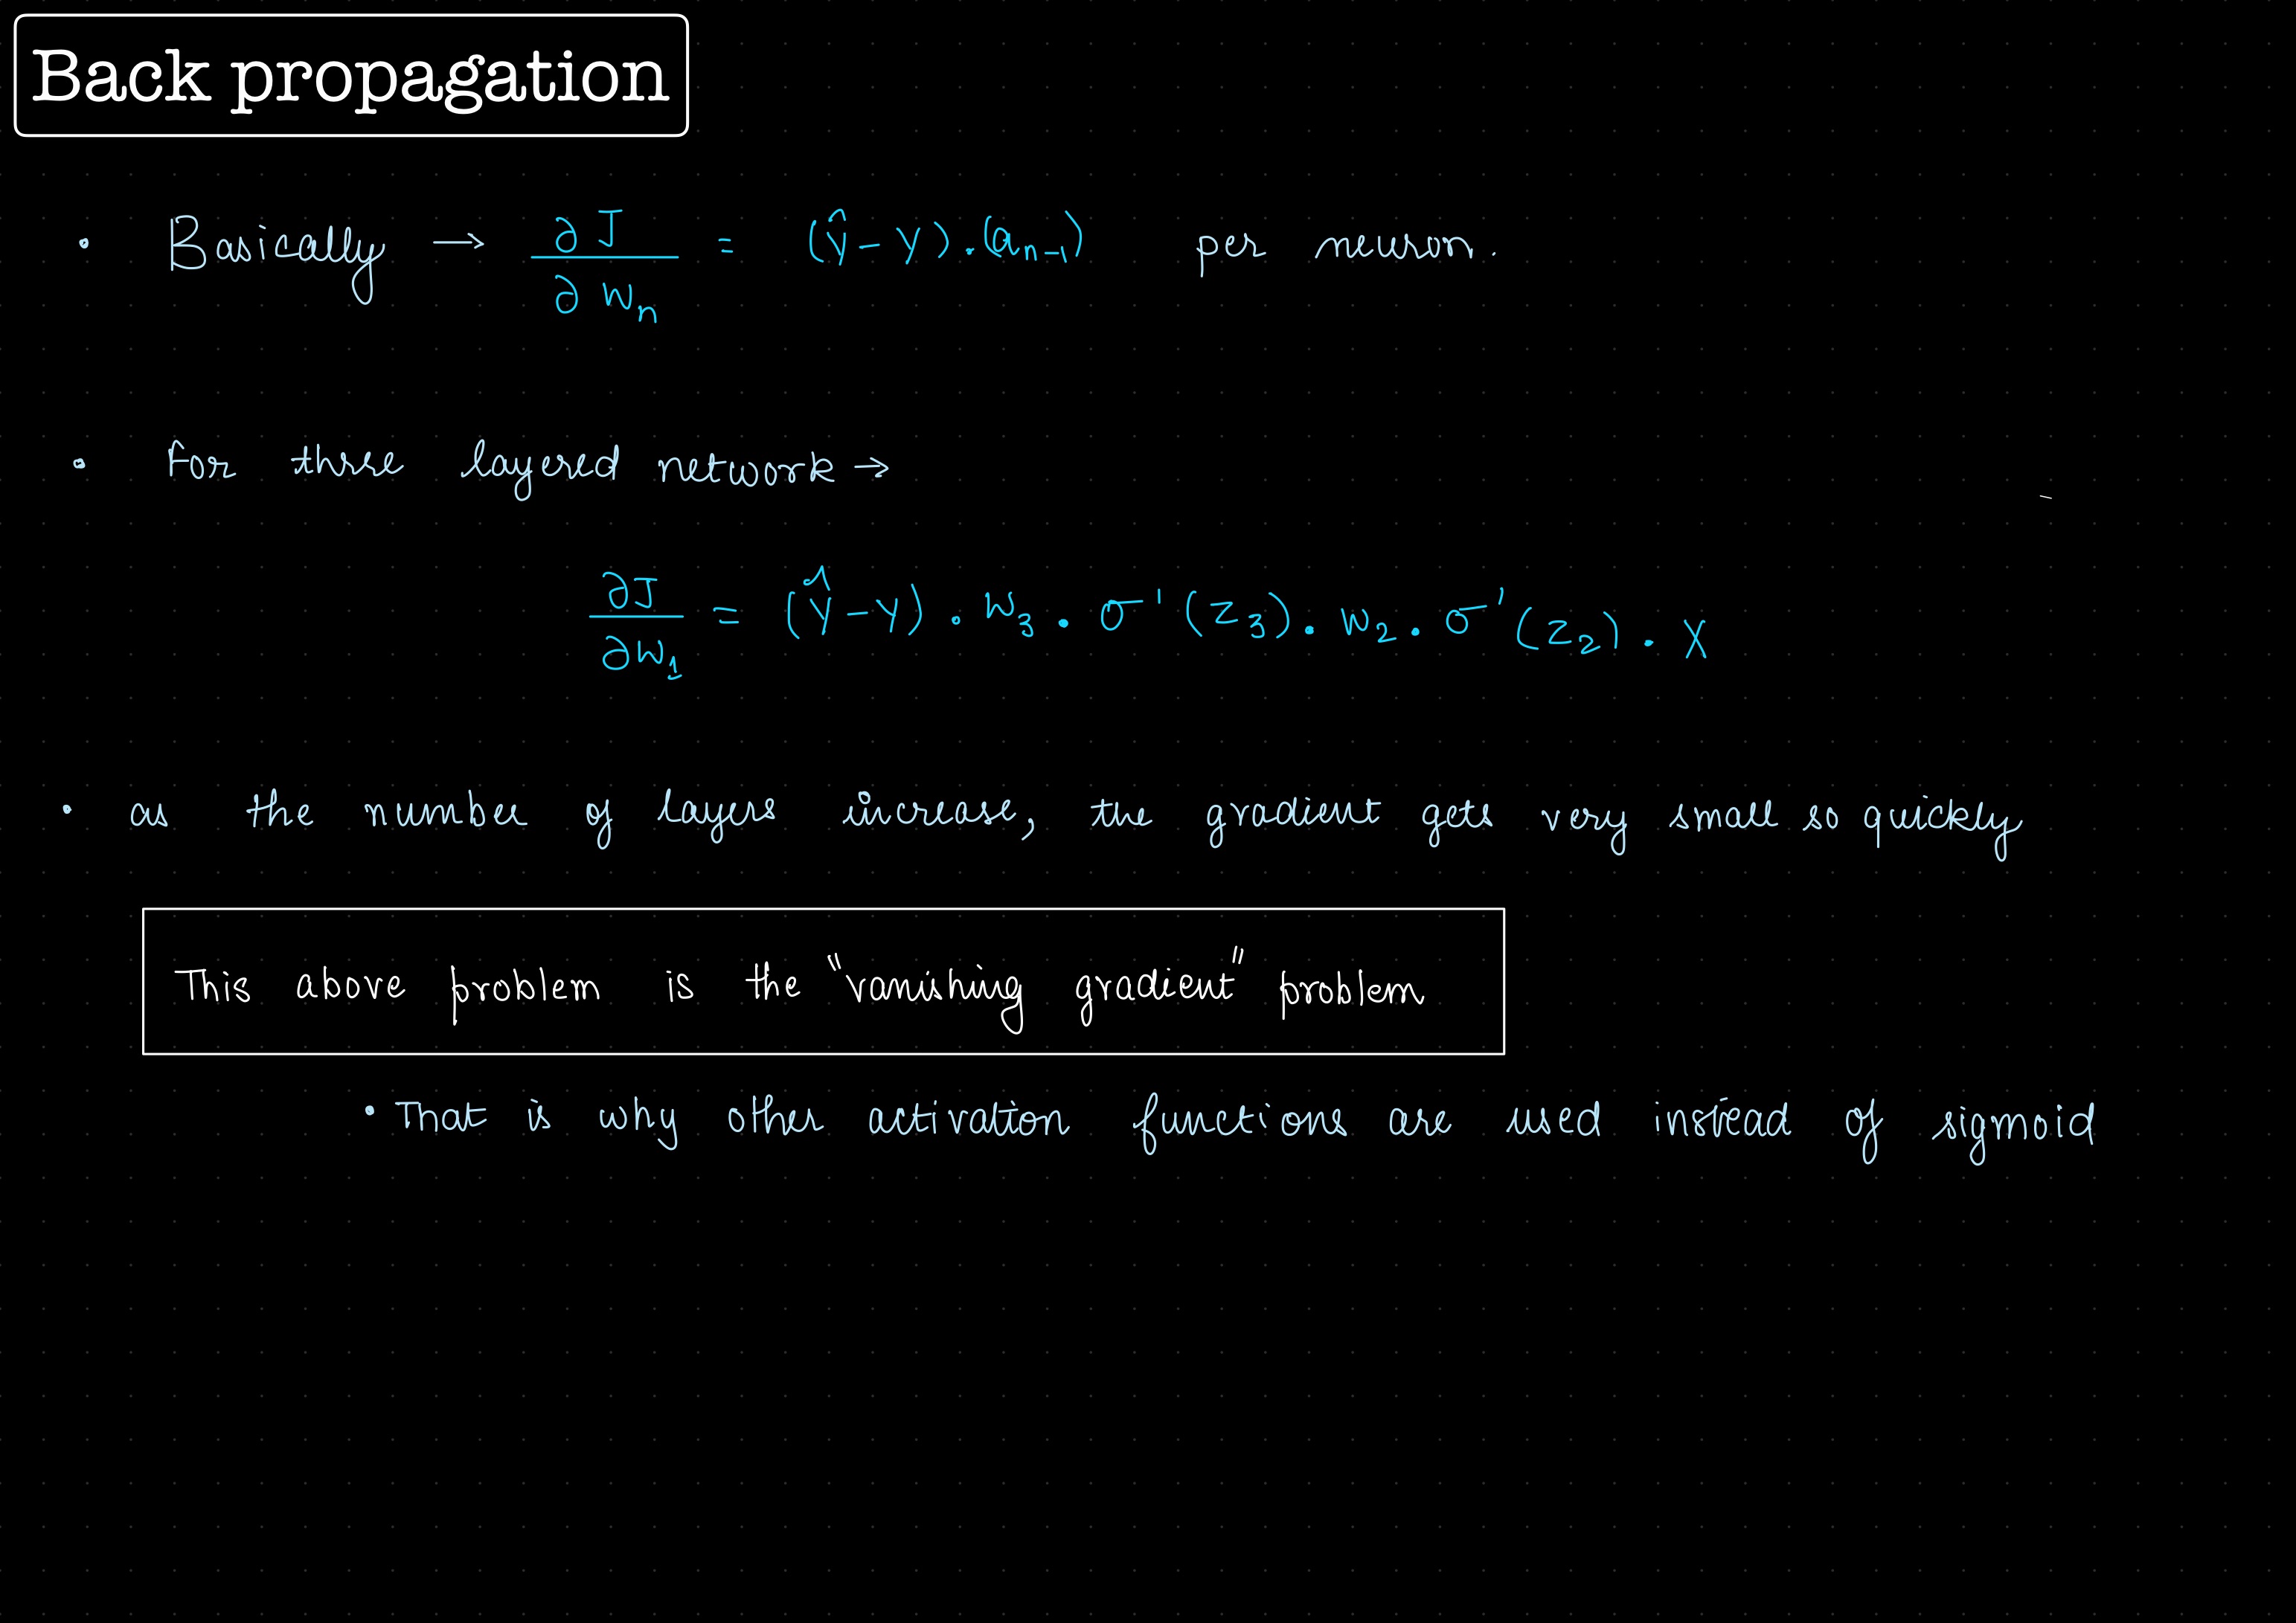 Back propagation
• Basically → ∂J/∂w_n = (ŷ - y).(a_{n-1}) per neuron.
• for three layered network →
∂J/∂w_1 = (ŷ - y) . w_3 . σ'(z_3) . w_2 . σ'(z_2) . X
• as the number of layers increase, the gradient gets very small so quickly
This above problem is the "vanishing gradient" problem
• That is why other activation functions are used instead of sigmoid